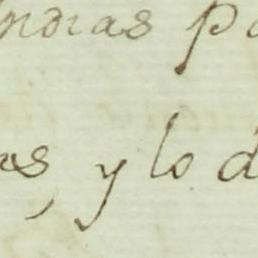 Indias p
as, y lo d